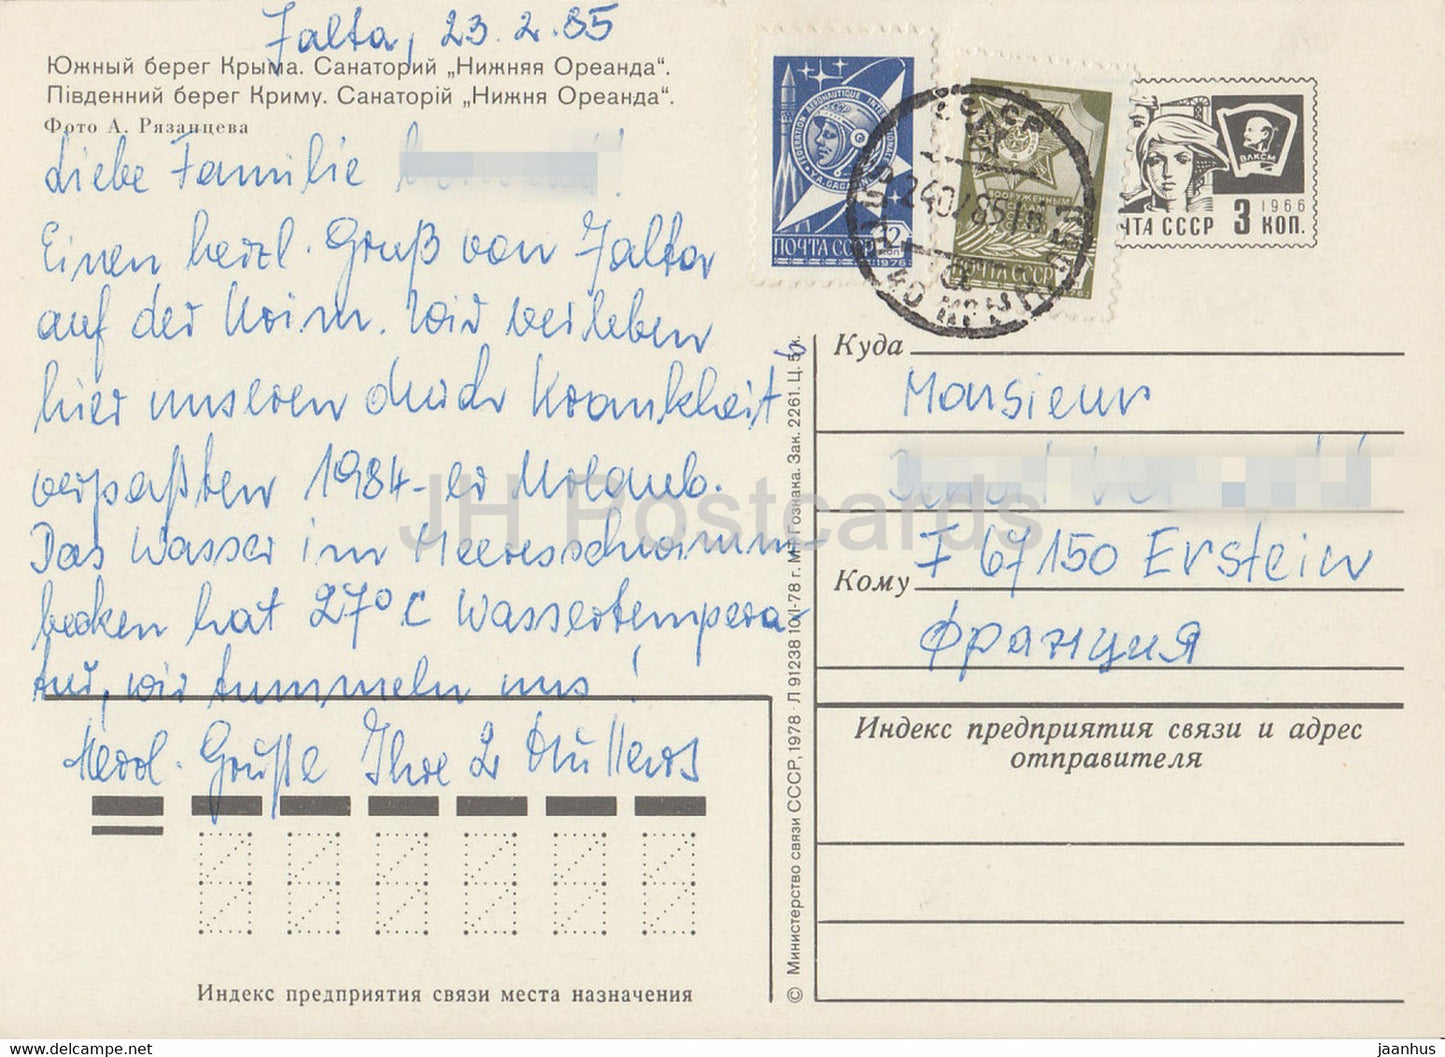 Jalta, 23.2.85
Южный берег Крыма. Санаторий „Нижняя Ореанда“.
Південний берег Криму. Санаторій „Нижня Ореанда“.
Фото А. Рязанцева
Liebe Familie
Einen herzl. Gruß von Jalta
auf der Krim. Wir verleben
hier unseren durch Krankheit
verpaßten 1984-er Urlaub.
Das Wasser im Meeresschwimm
becken hat 27°C Wassertempera-
tur, wir tummeln uns!
Herzl. Grüße Ihre 2 Müllers
Индекс предприятия связи места назначения
© Министерство связи СССР, 1978 · Л 91238 10/I-78 г. М. Гознака. Зак. 2261. Ц. 5 к.
FEDERATION AERONAUTIQUE INTERNATIONALE
Y.A. GAGARIN
ПОЧТА СССР 12 коп
1976
СССР
ВООРУЖЕННЫМ
ПОЧТА СССР
ВЛКСМ
1966
ЧТА СССР 3 КОП.
Куда
Monsieur
F 67150 Erstein
Кому
Франция
Индекс предприятия связи и адрес
отправителя
JH Postcards
https://www.jhpostcards.com
jaanhus